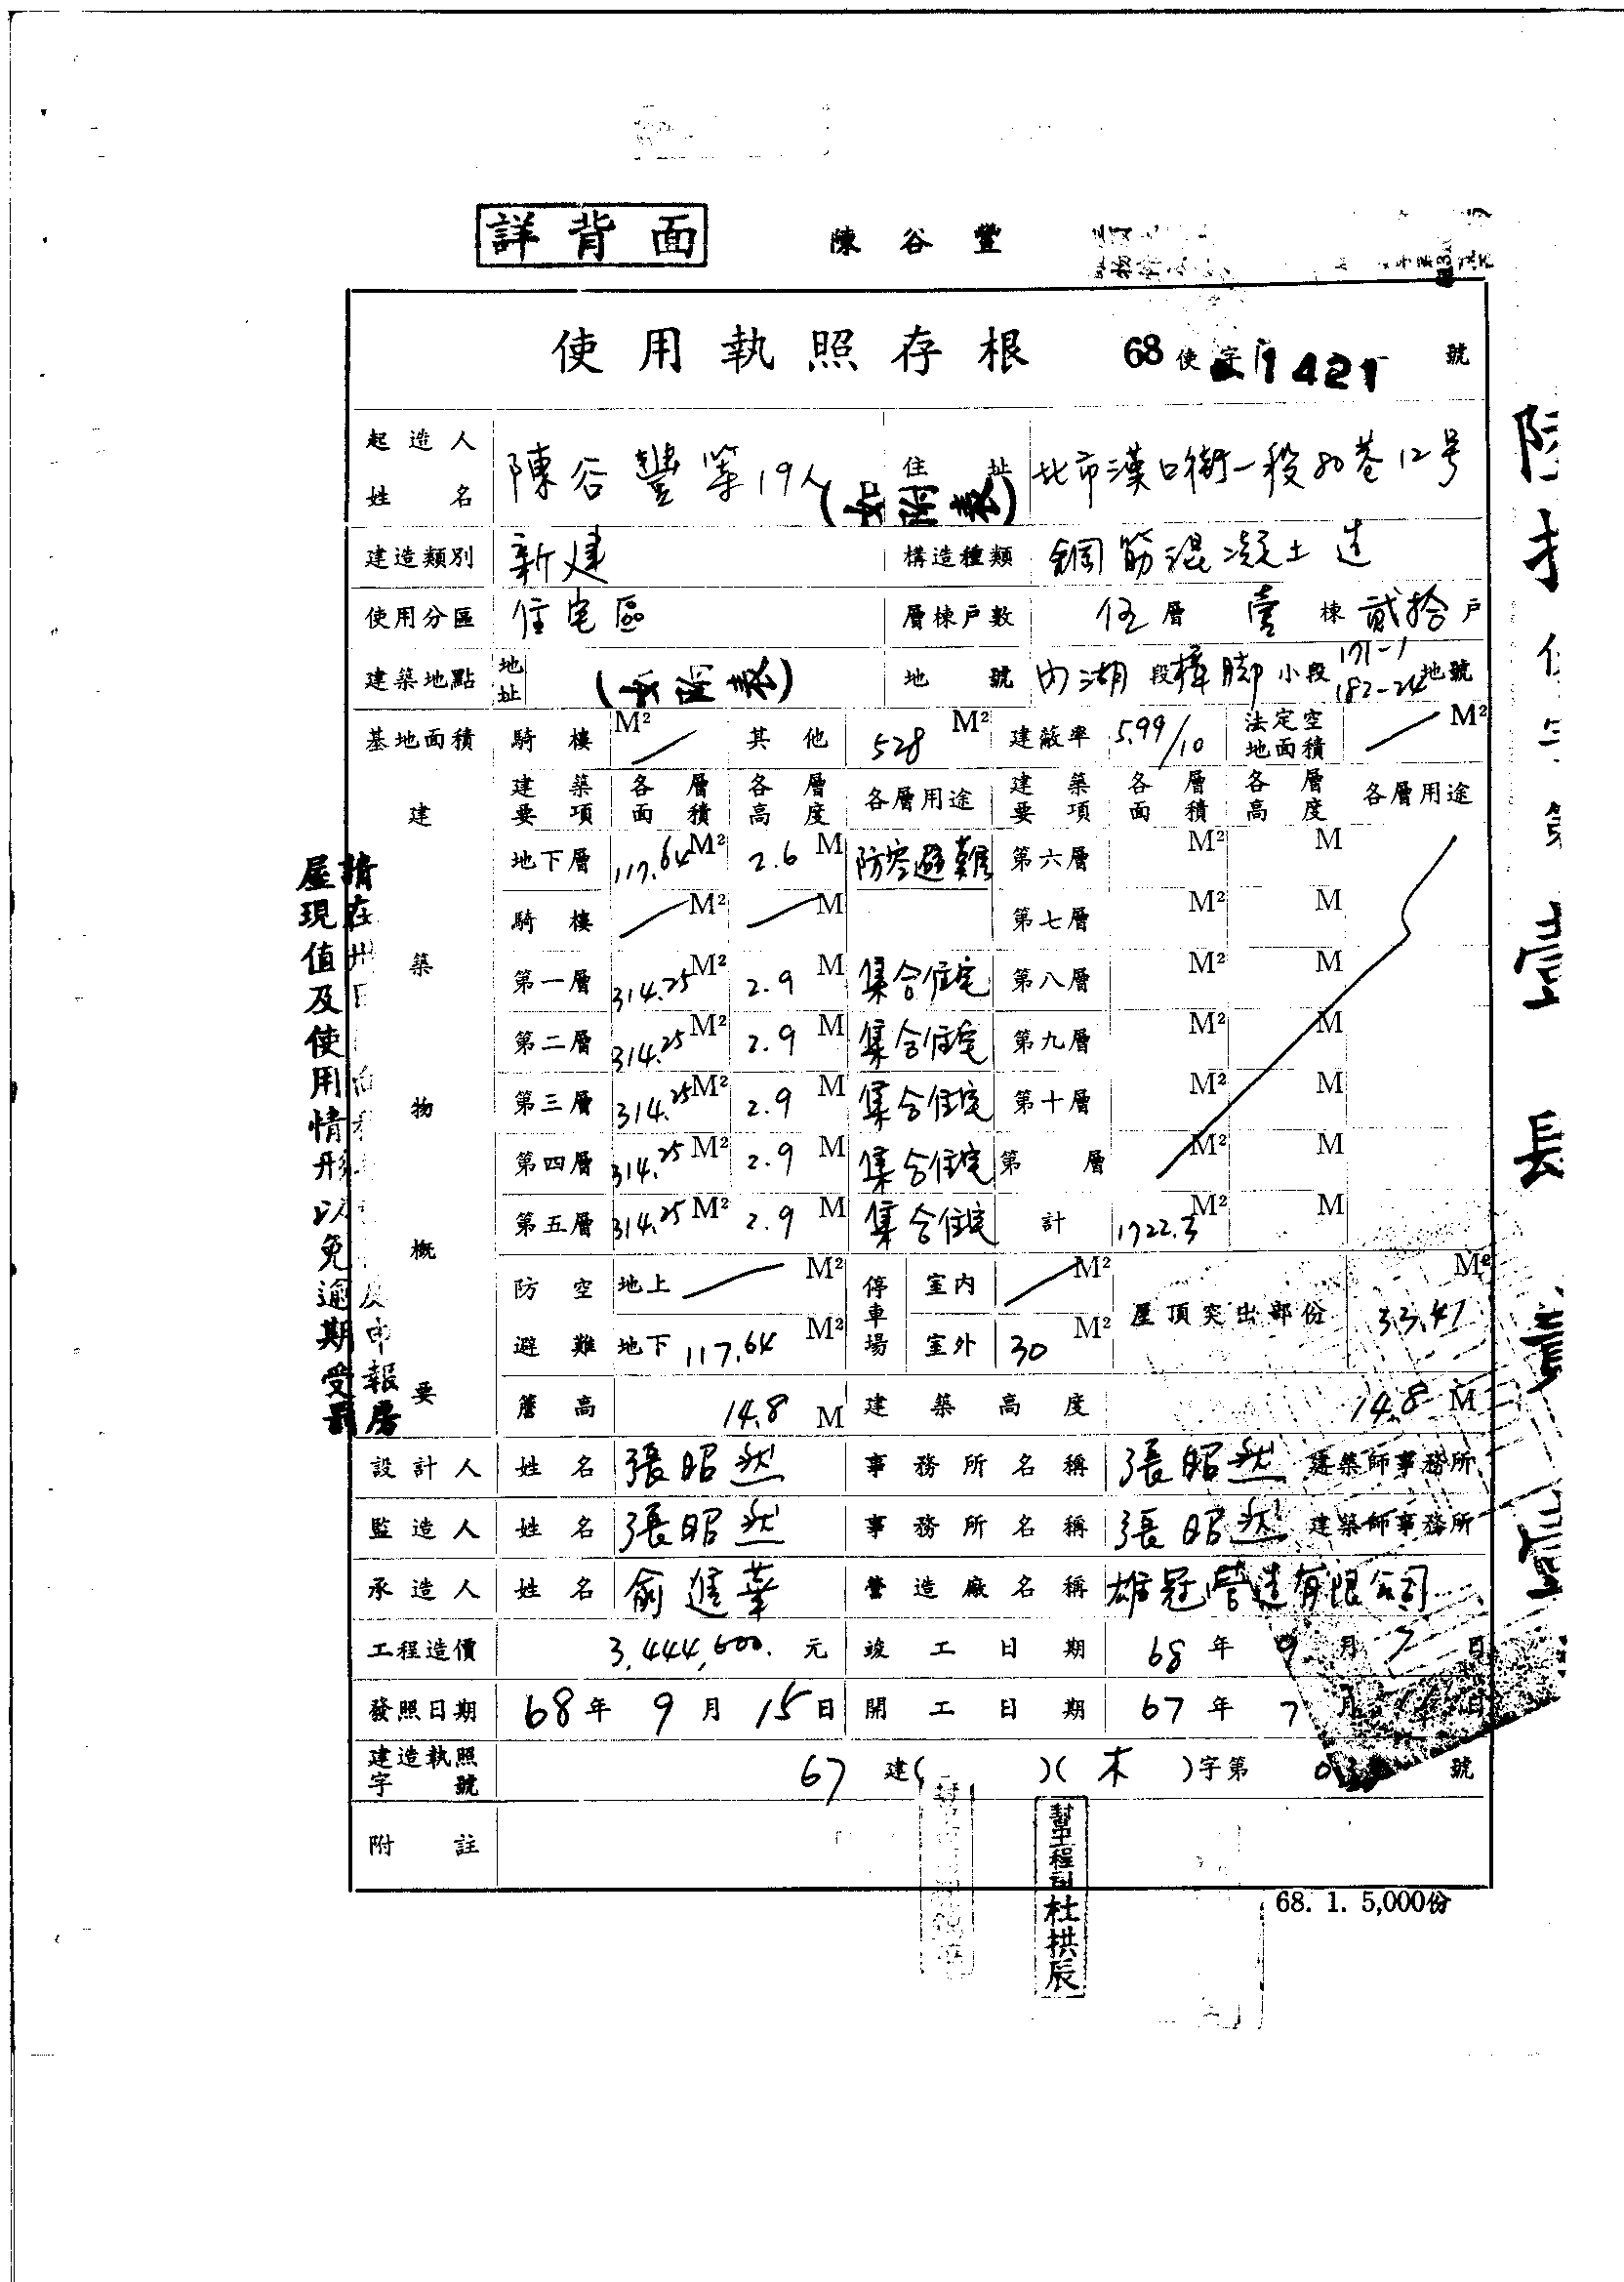 詳背面
陳谷豐
使用執照存根 68使字 1421 號
起造人姓名 陳谷豐等19人 住址 北市漢口街一段80巷12号
建造類別 新建 構造種類 鋼筋混凝土造
使用分區 住宅區 層棟戶數 伍層 壹棟 貳拾戶
建築地點 地址 地號 內湖段樟腳小段 171-1 182-24 地號
基地面積 騎樓 M² 其他 528 M² 建蔽率 5.99/10 法定空地面積 M²
建築物概要
建築要項 各層面積 各層高度 各層用途 建築要項 各層面積 各層高度 各層用途
地下層 117.64 M² 2.6 M 防空避難 第六層 M² M
騎樓 M² M 第七層 M² M
第一層 314.25 M² 2.9 M 集合住宅 第八層 M² M
第二層 314.25 M² 2.9 M 集合住宅 第九層 M² M
第三層 314.25 M² 2.9 M 集合住宅 第十層 M² M
第四層 314.25 M² 2.9 M 集合住宅 第 層 M² M
第五層 314.25 M² 2.9 M 集合住宅 計 1722.3 M² M
防空避難 地上 M² 停車場 室內 M² 屋頂突出部份 33.47 M²
地下 117.64 M² 室外 30 M²
簷高 14.8 M 建築高度 14.8 M
設計人 姓名 張昭然 事務所名稱 張昭然 建築師事務所
監造人 姓名 張昭然 事務所名稱 張昭然 建築師事務所
承造人 姓名 俞進華 營造廠名稱 雄冠營造有限公司
工程造價 3,444,600. 元 竣工日期 68年 9月 7日
發照日期 68年 9月 15日 開工日期 67年 7月 日
建造執照字號 67 建( )(木)字第 號
附註
68. 1. 5,000份
幫工程司 杜拱辰
屋現值及使用情形以免逾期受罰